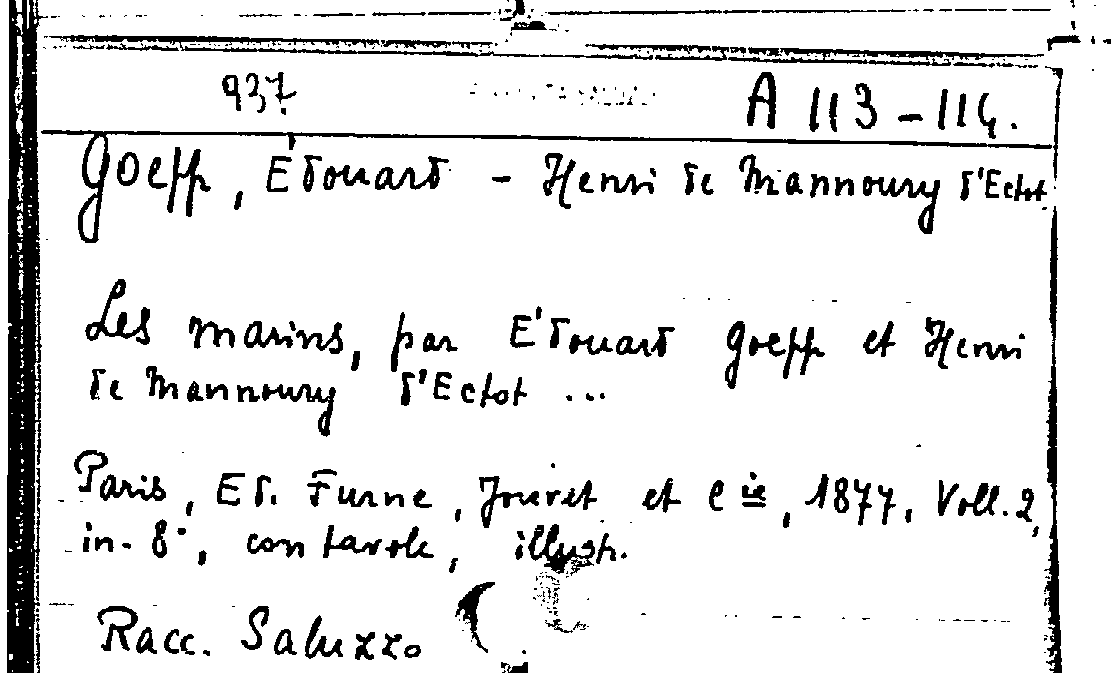 937 A 113-114.
Goepp, Édouard - Henri de Mannoury d'Ectot
Les marins, par Édouard Goepp et Henri
de Mannoury d'Ectot ...
Paris, Ed. Furne, Jouvet et Cie, 1877, Voll. 2,
in-8°, con tavole, illustr.
Racc. Saluzzo